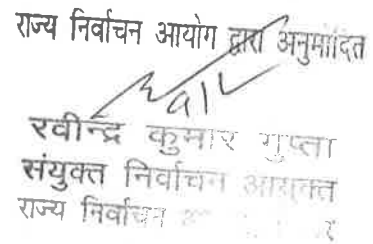 राज्य निर्वाचन आयोग द्वारा अनुमोदित
रवीन्द्र कुमार गुप्ता
संयुक्त निर्वाचन आयुक्त
राज्य निर्वाचन